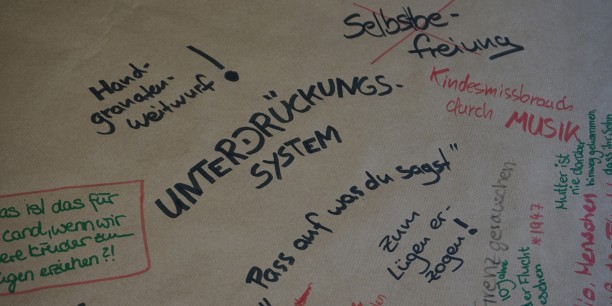 Selbstbe-
freiung
Hand-
granaten-
weitwurf!
UNTERDRÜCKUNGS-
SYSTEM
Kindesmissbrauch
durch MUSIK
Pass auf was du sagst"
Zum
Lügen er-
zogen!
as ist das für
land, wenn wir
ere Kinder zum
ügen erziehen?!
Mutter ist
nie darüber
hinweg gekommen
dass ihr Sohn
10 Jahre
er Flucht
*1947
Menschen